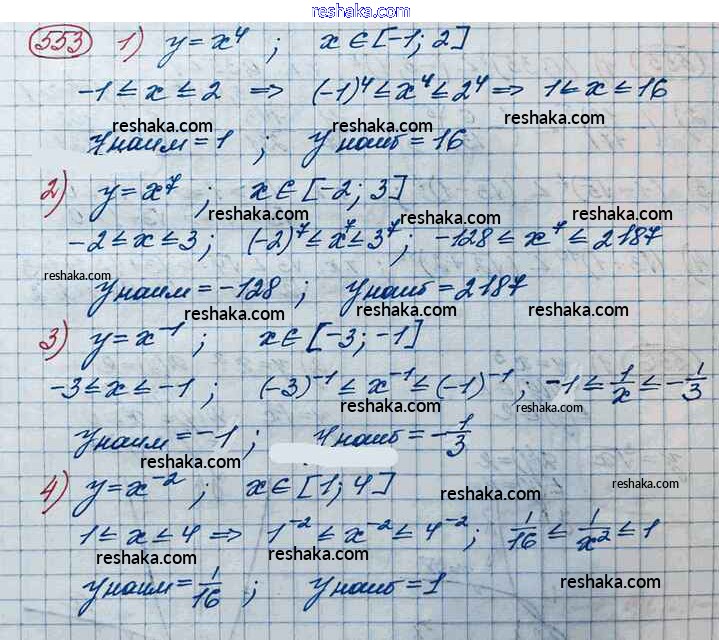 reshaka.com
553 1) y = x⁴ ; x ∈ [-1; 2]
-1 ≤ x ≤ 2 ⇒ (-1)⁴ ≤ x⁴ ≤ 2⁴ ⇒ 1 ≤ x ≤ 16
reshaka.com reshaka.com reshaka.com
y наим = 1 ; y наиб = 16
2) y = x⁷ ; x ∈ [-2; 3]
reshaka.com reshaka.com reshaka.com
-2 ≤ x ≤ 3; (-2)⁷ ≤ x⁷ ≤ 3⁷; -128 ≤ x⁷ ≤ 2187
reshaka.com reshaka.com
y наим = -128 ; y наиб = 2187
reshaka.com reshaka.com reshaka.com
3) y = x⁻¹ ; x ∈ [-3; -1]
-3 ≤ x ≤ -1; (-3)⁻¹ ≤ x⁻¹ ≤ (-1)⁻¹; -1 ≤ 1/x ≤ -1/3
reshaka.com reshaka.com
y наим = -1 ; y наиб = -1/3
reshaka.com reshaka.com
4) y = x⁻² ; x ∈ [1; 4]
reshaka.com reshaka.com
1 ≤ x ≤ 4 ⇒ 1⁻² ≤ x⁻² ≤ 4⁻²; 1/16 ≤ 1/x² ≤ 1
reshaka.com reshaka.com reshaka.com
y наим = 1/16 ; y наиб = 1
reshaka.com reshaka.com
reshaka.com